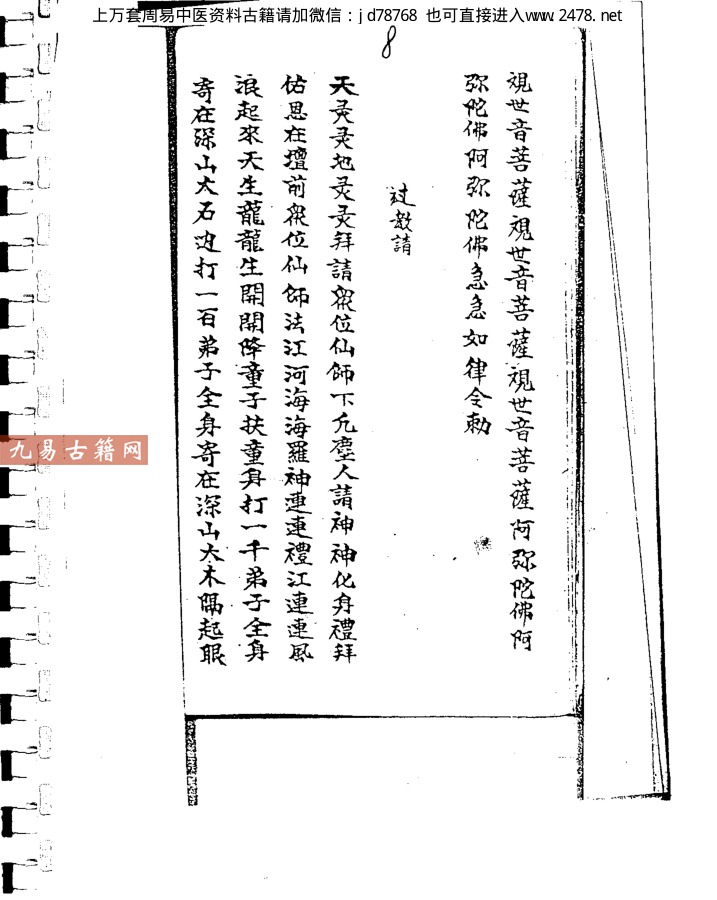 上万套周易中医资料古籍请加微信：jd78768 也可直接进入www.2478.net
8
視世音菩薩視世音菩薩視世音菩薩阿弥陀佛阿
弥陀佛阿弥陀佛急急如律令勅
过教請
天灵灵地灵灵拜請眾位仙師下凡塵人請神神化身禮拜
估恩在壇前眾位仙師法江河海海羅神連連禮江連連風
浪起來天生龍龍生開開降童子扶童身打一千弟子全身
寄在深山大石边打一百弟子全身寄在深山大木隔起眼
九易古籍网